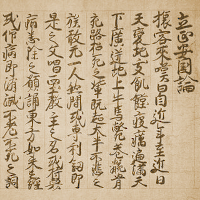 立正安国論
旅客来嘆曰自近年至近日
天變地夭飢饉疫癘遍満天
下廣迸地上牛馬斃巷骸骨
充路招死之輩既超大半不悲之
族敢無一人然間或專利剣即
是之文唱西土教主之名或持衆
病悉除之願誦東方如来之経
或仰病即消滅不老不死之詞